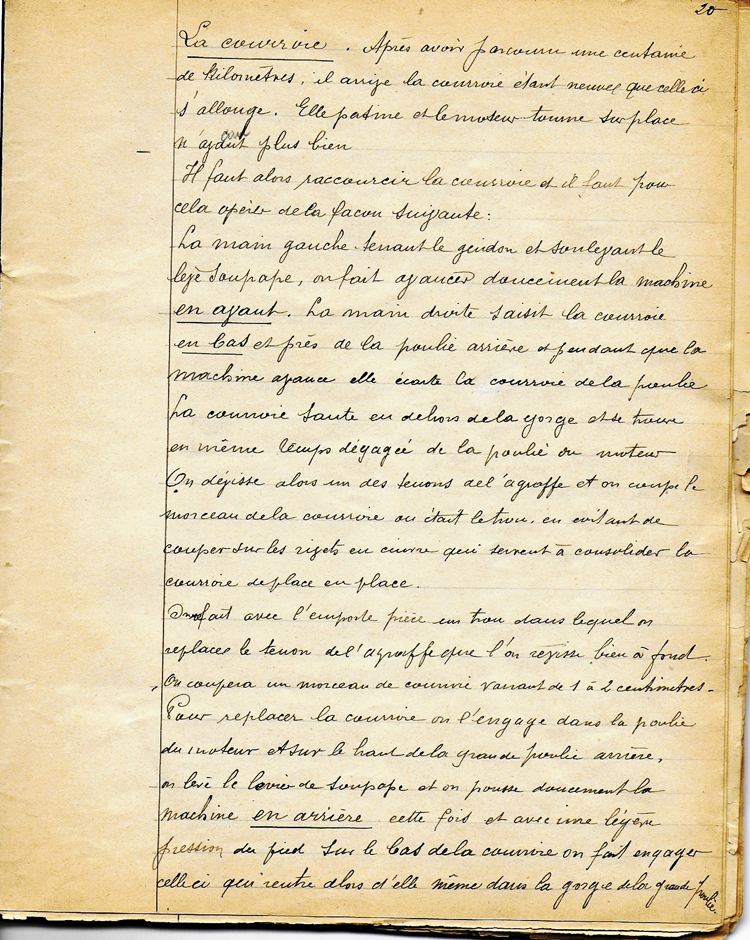 20
La courroie. Après avoir parcouru une centaine
de kilomètres, il arrive la courroie étant neuve que celle ci
s'allonge. Elle patine et le moteur tourne sur place
n'ayant plus bien
Il faut alors raccourcir la courroie et il faut pour
cela opérer de la façon suivante:
La main gauche tenant le guidon et soulevant le
lève soupape, on fait avancer doucement la machine
en avant. La main droite saisit la courroie
en bas et près de la poulie arrière et pendant que la
machine avance elle écarte la courroie de la poulie
La courroie saute en dehors de la gorge et se trouve
en même temps dégagée de la poulie du moteur
On dévisse alors un des tenons de l'agraffe et on coupe le
morceau de la courroie ou était le trou, en évitant de
couper sur les rivets en cuivre qui servent à consolider la
courroie de place en place.
On fait avec l'emporte pièce un trou dans lequel on
replace le tenon de l'agraffe que l'on revisse bien à fond.
On coupera un morceau de courroie variant de 1 à 2 centimètres-
Pour replacer la courroie on l'engage dans la poulie
du moteur et sur le haut de la grande poulie arrière,
on lève le levier de soupape et on pousse doucement la
machine en arrière cette fois et avec une légère
pression du pied sur le bas de la courroie on fait engager
celle ci qui rentre alors d'elle même dans la gorge de la grande poulie.